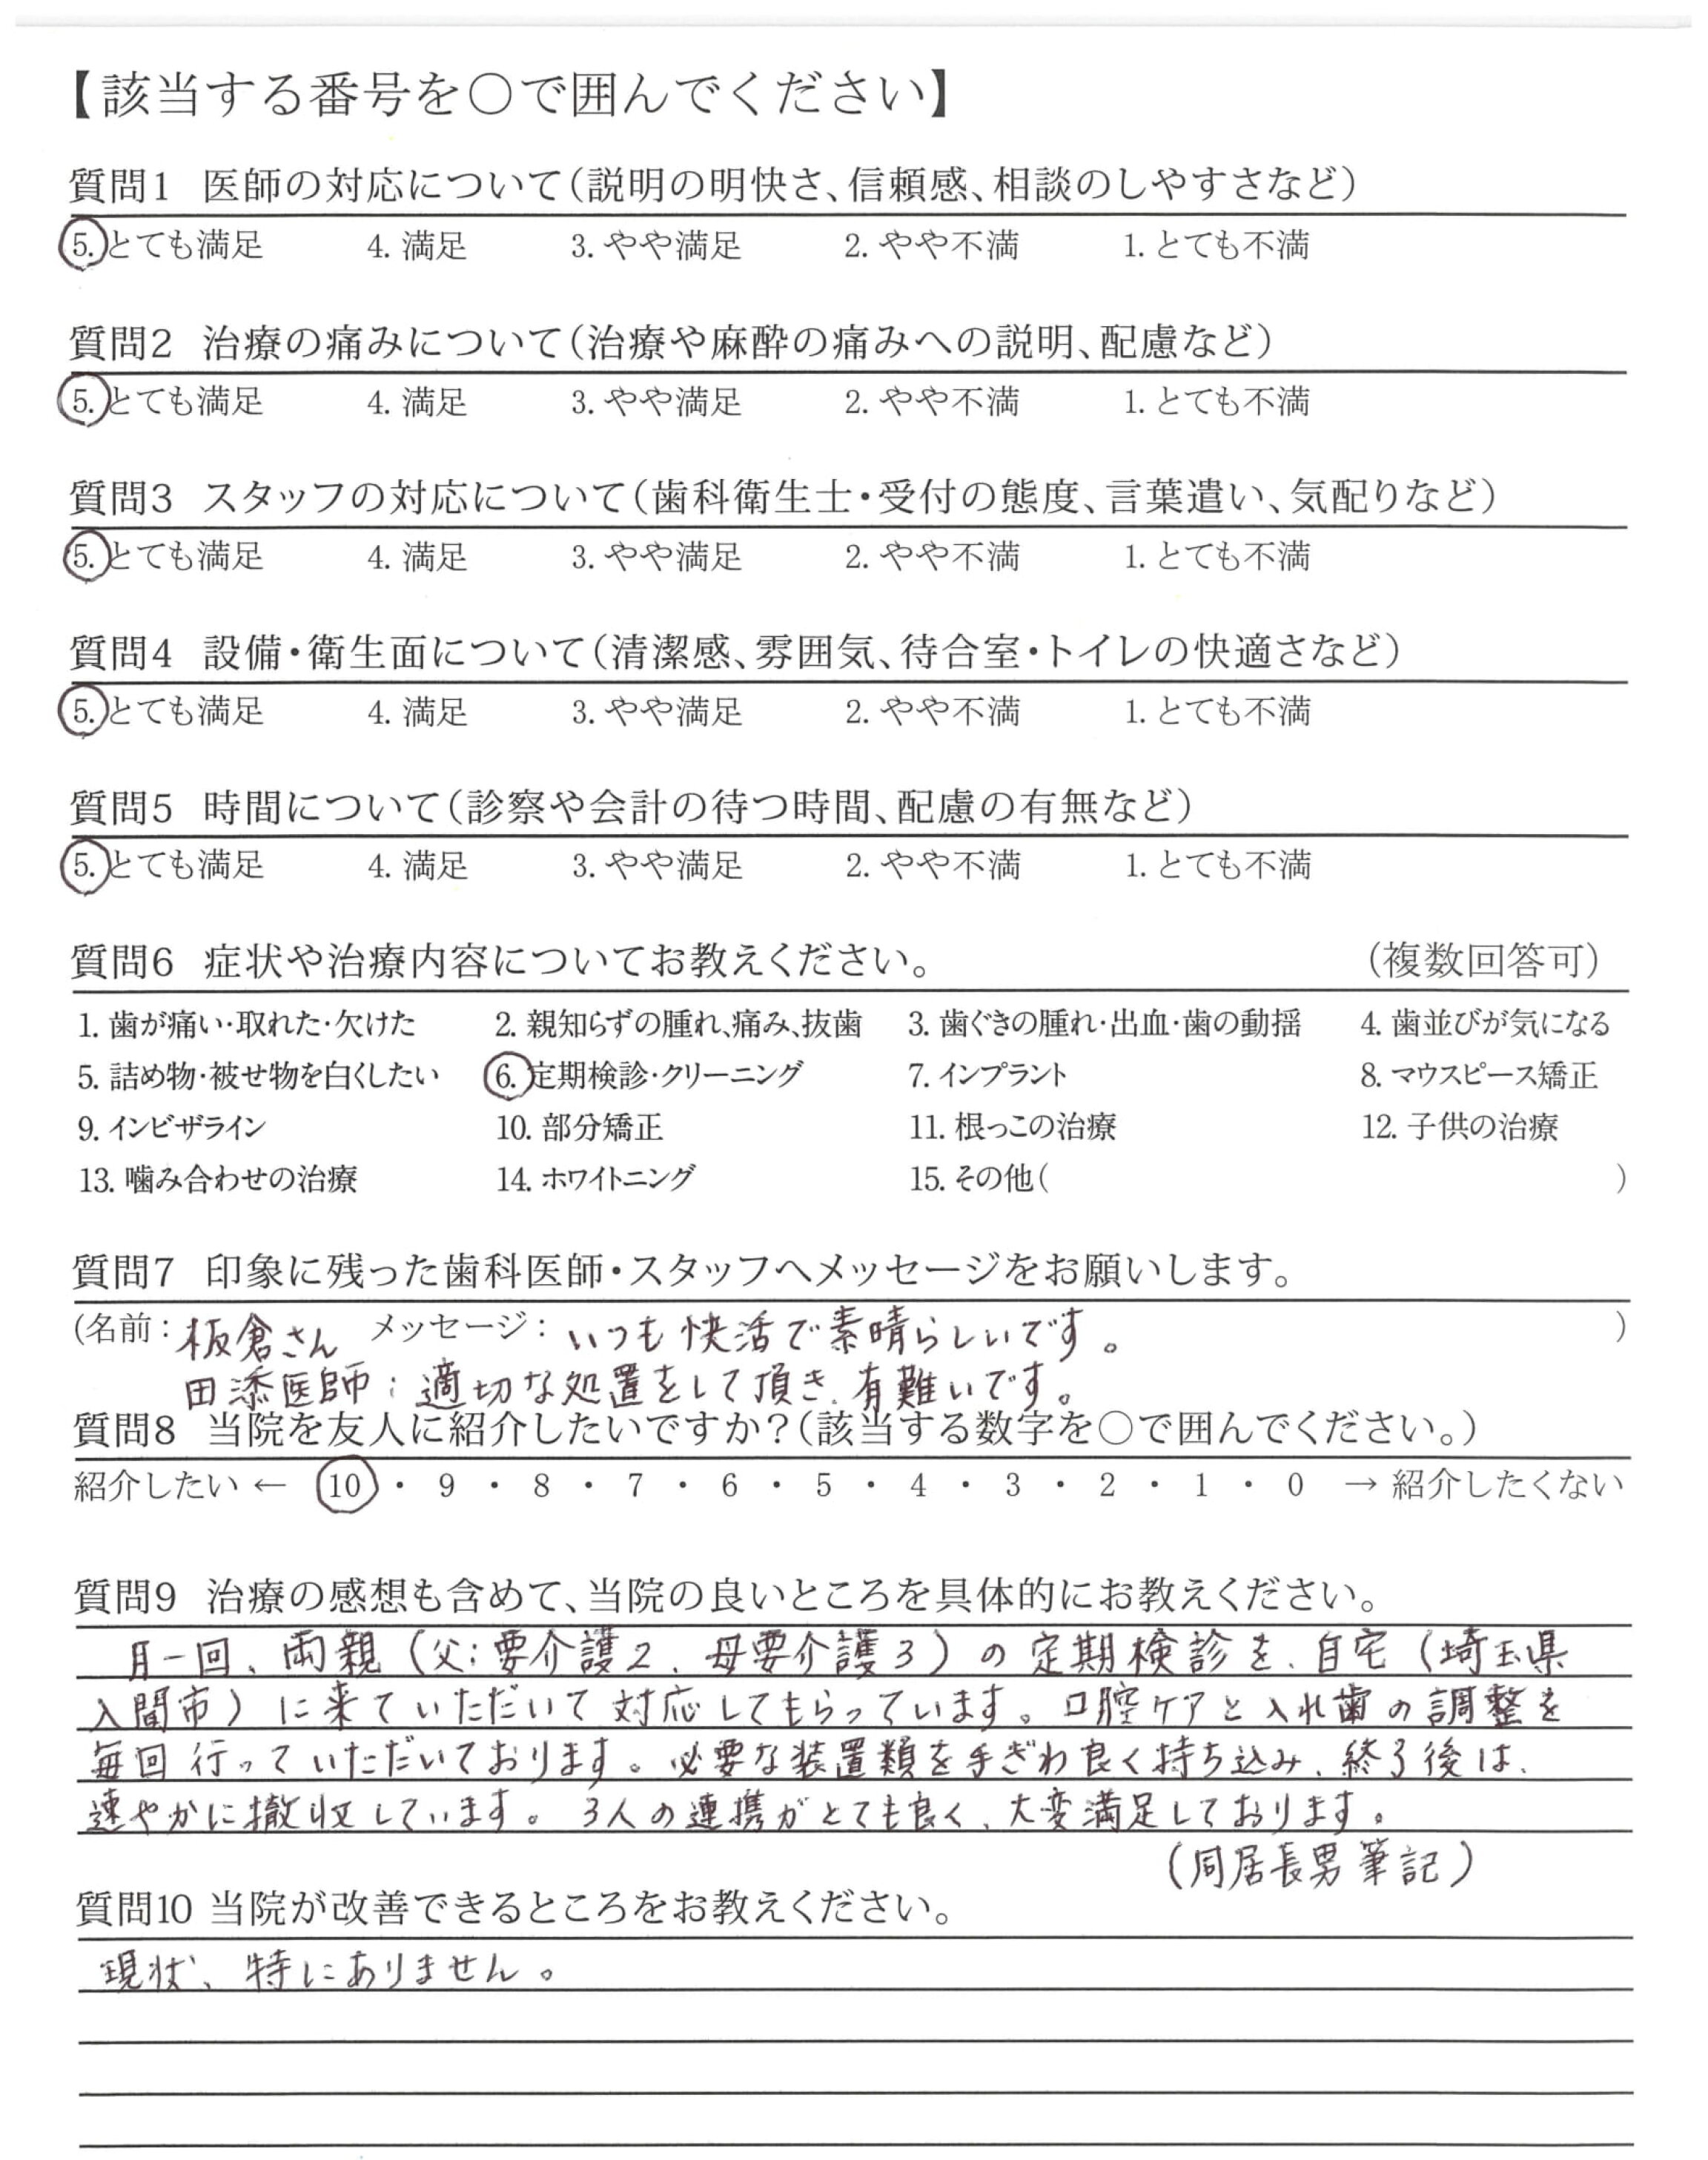 【該当する番号を○で囲んでください】
質問1 医師の対応について(説明の明快さ、信頼感、相談のしやすさなど)
5. とても満足 4. 満足 3. やや満足 2. やや不満 1. とても不満
質問2 治療の痛みについて(治療や麻酔の痛みへの説明、配慮など)
5. とても満足 4. 満足 3. やや満足 2. やや不満 1. とても不満
質問3 スタッフの対応について(歯科衛生士・受付の態度、言葉遣い、気配りなど)
5. とても満足 4. 満足 3. やや満足 2. やや不満 1. とても不満
質問4 設備・衛生面について(清潔感、雰囲気、待合室・トイレの快適さなど)
5. とても満足 4. 満足 3. やや満足 2. やや不満 1. とても不満
質問5 時間について(診察や会計の待つ時間、配慮の有無など)
5. とても満足 4. 満足 3. やや満足 2. やや不満 1. とても不満
質問6 症状や治療内容についてお教えください。 (複数回答可)
1. 歯が痛い・取れた・欠けた 2. 親知らずの腫れ、痛み、抜歯 3. 歯ぐきの腫れ・出血・歯の動揺 4. 歯並びが気になる
5. 詰め物・被せ物を白くしたい 6. 定期検診・クリーニング 7. インプラント 8. マウスピース矯正
9. インビザライン 10. 部分矯正 11. 根っこの治療 12. 子供の治療
13. 噛み合わせの治療 14. ホワイトニング 15. その他( )
質問7 印象に残った歯科医師・スタッフへメッセージをお願いします。
(名前: 板倉さん メッセージ: いつも快活で素晴らしいです。 )
田添医師:適切な処置をして頂き、有難いです。
質問8 当院を友人に紹介したいですか?(該当する数字を○で囲んでください。)
紹介したい ← 10 ・ 9 ・ 8 ・ 7 ・ 6 ・ 5 ・ 4 ・ 3 ・ 2 ・ 1 ・ 0 → 紹介したくない
質問9 治療の感想も含めて、当院の良いところを具体的にお教えください。
月一回、両親(父:要介護2、母要介護3)の定期検診を、自宅(埼玉県
入間市)に来ていただいて対応してもらっています。口腔ケアと入れ歯の調整を
毎回行っていただいております。必要な装置類を手ぎわ良く持ち込み、終了後は、
速やかに撤収しています。3人の連携がとても良く、大変満足しております。
(同居長男筆記)
質問10 当院が改善できるところをお教えください。
現状、特にありません。